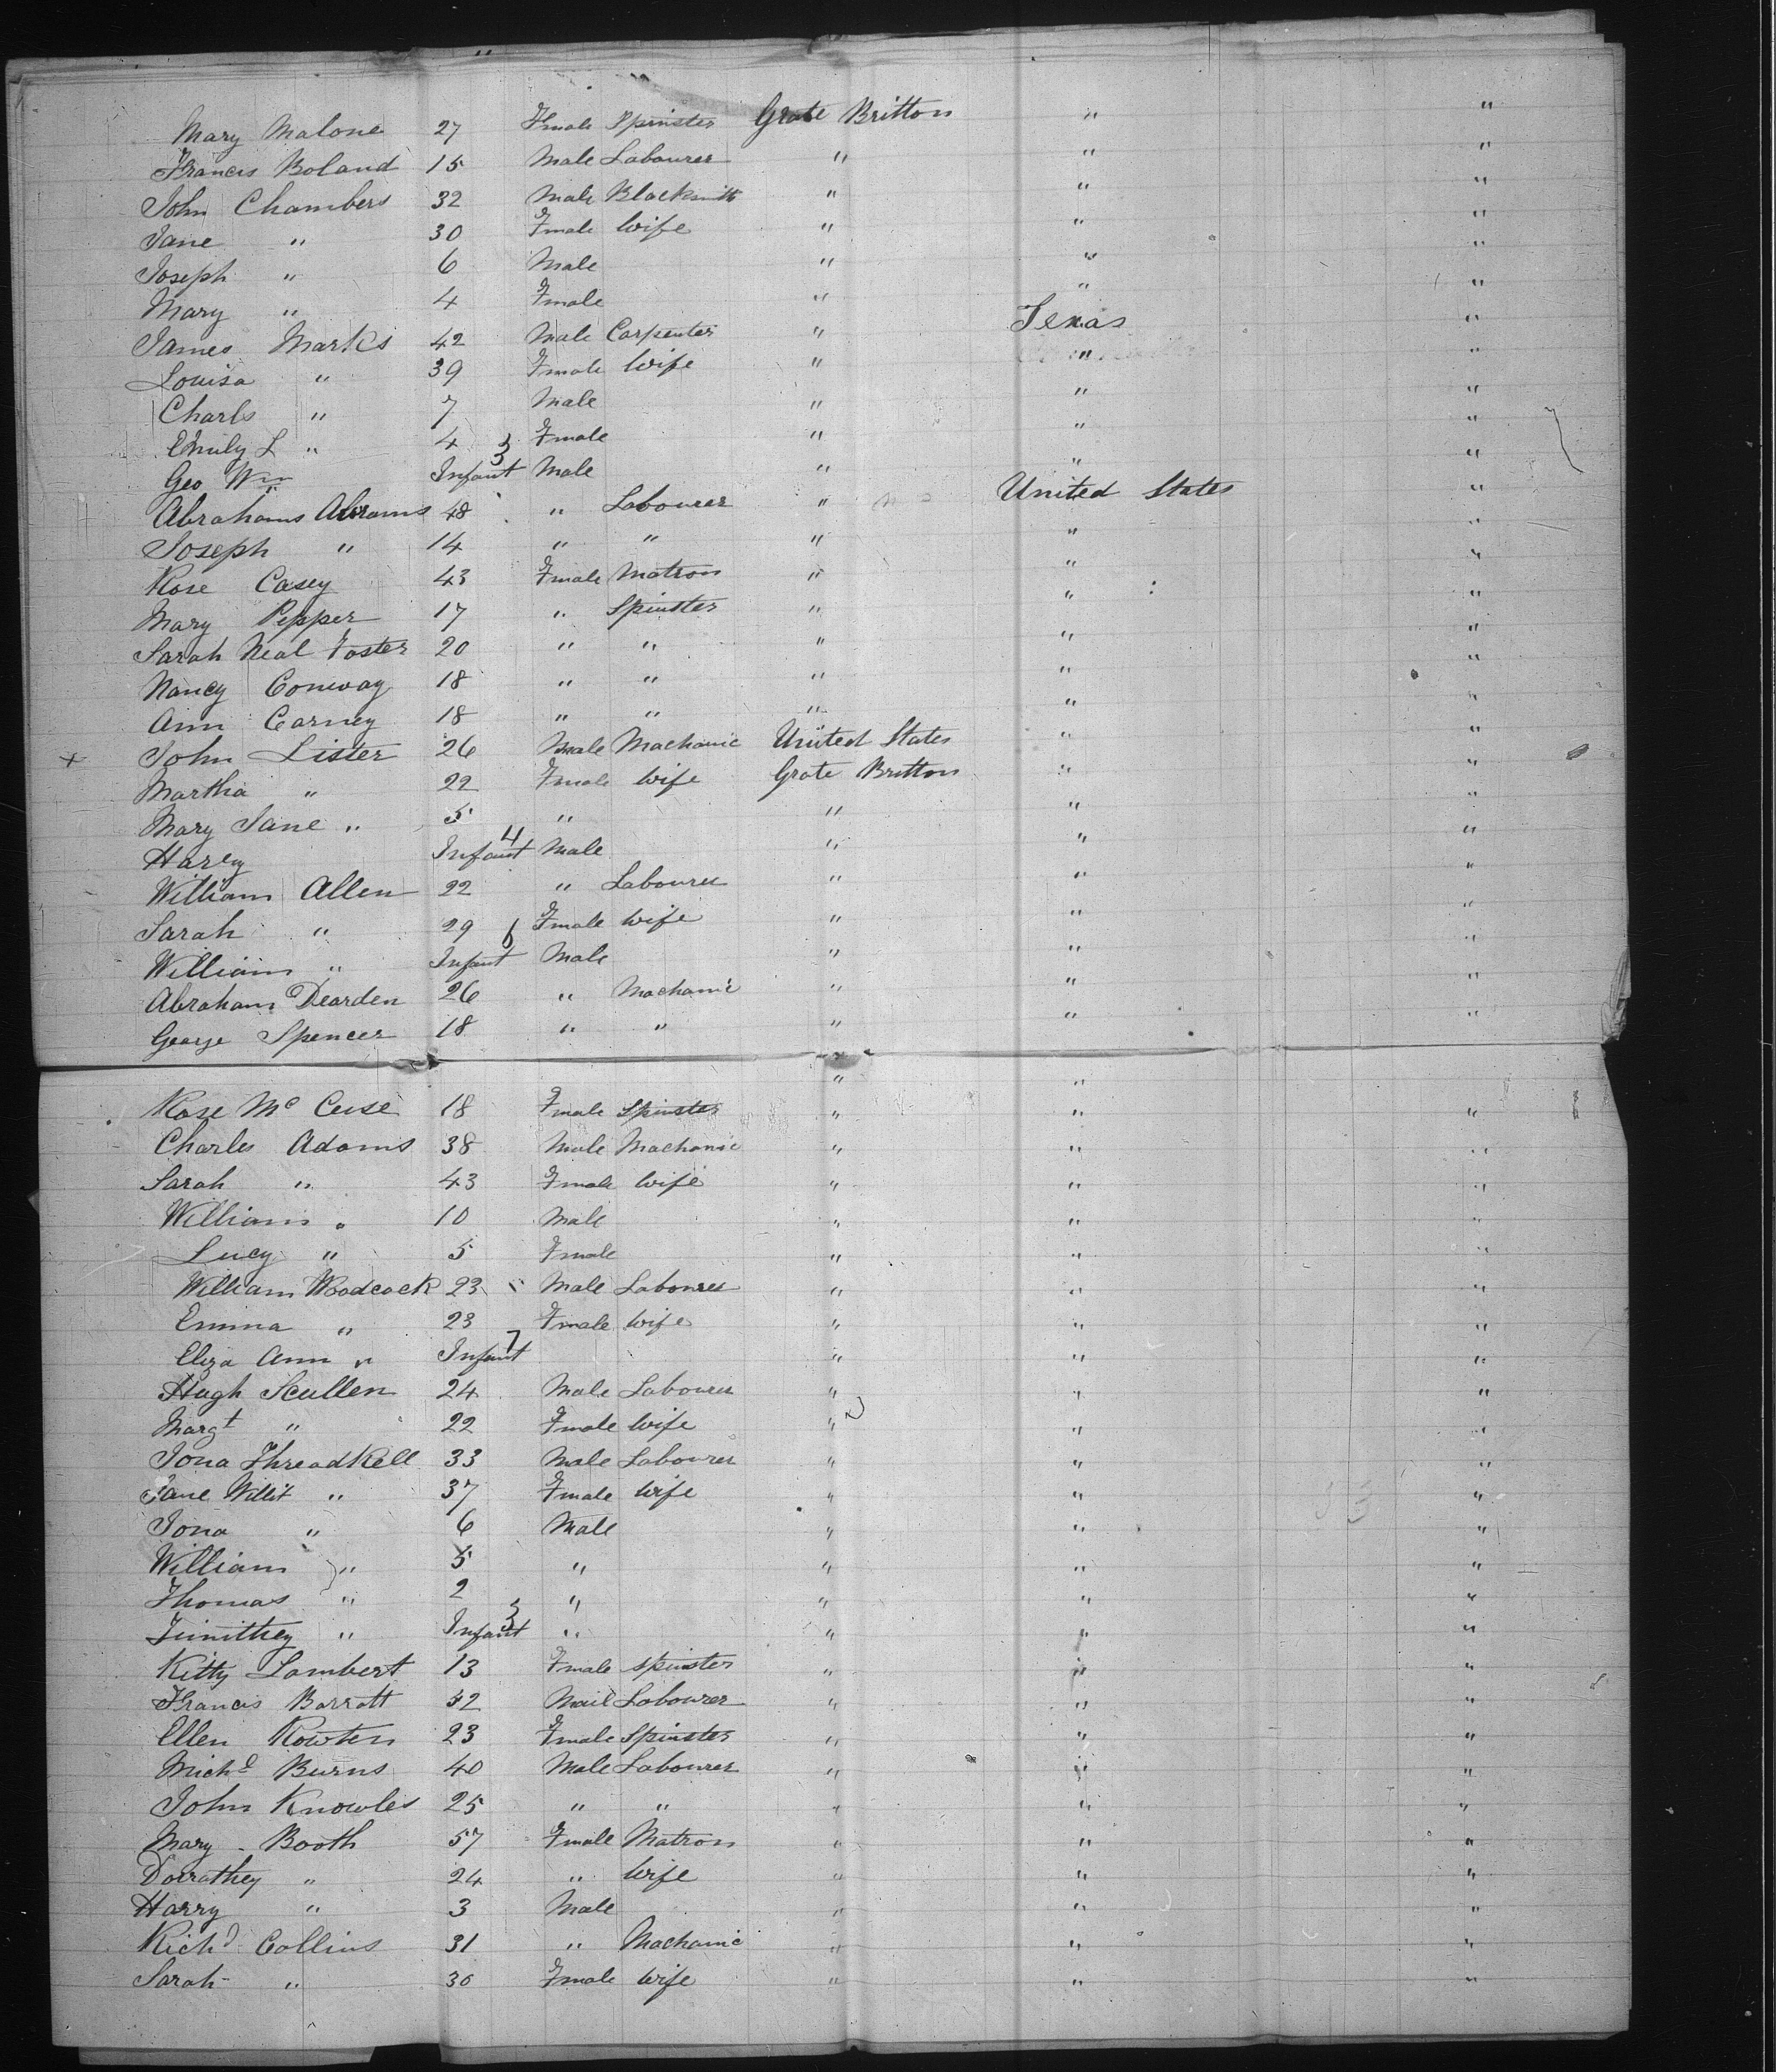 "
Mary Malone 27 Fmale Spinster Grate Britton " "
Francis Boland 15 Male Labourer " " "
John Chambers 32 Male Blacksmith " " "
Jane " 30 Fmale Wife " " "
Joseph " 6 Male " " "
Mary " 4 Fmale " " "
James Marks 42 Male Carpenter " Texas "
Louisa " 39 Fmale Wife " " "
Charls " 7 Male " " "
Emily L " 4 Fmale " " "
Geo Wm " Infant 3 Male " " "
Abrahams Abrams 48 " Labourer " United States "
Joseph " 14 " " " " "
Rose Casey 43 Fmale Matron " " "
Mary Pepper 17 " Spinster " " "
Sarah Neal Foster 20 " " " " "
Nancy Conway 18 " " " " "
Ann Carney 18 " " " " "
+ John Lister 26 Male Machanic United States " "
Martha " 22 Fmale Wife Grate Britton " "
Mary Jane " 5 " " " "
Harey Infant 4 Male " " "
William Allen 22 " Labourer " " "
Sarah " 29 Fmale Wife " " "
William " Infant 6 Male " " "
Abraham Dearden 26 " Machanic " " "
George Spencer 18 " " " " "
" "
Rose Mc 18 Fmale Spinster " " "
Charles Adams 38 Male Machanic " " "
Sarah " 43 Fmale Wife " " "
William " 10 Male " " "
Lucy " 5 Fmale " " "
William Woodcock 23 Male Labourer " " "
Emma " 23 Fmale Wife " " "
Eliza Ann " Infant 7 " " "
Hugh Scullen 24 Male Labourer " " "
Margt " 22 Fmale Wife " " "
Jona Threadkell 33 Male Labourer " " "
Jane Willit " 37 Fmale Wife " " "
Jona " 6 Male " " "
William " 5 " " " "
Thomas " 2 " " " "
Timithey " Infant 3 " " " "
Kitty Lambert 13 Fmale Spinster " " "
Francis Barratt 42 Mail Labourer " " "
Ellen Rowten 23 Fmale Spinster " " "
Michl Burns 40 Male Labourer " " "
John Knowles 25 " " " " "
Mary Booth 57 Fmale Matron " " "
Dorrathey " 24 " Wife " " "
Harry " 3 Male " " "
Richd Collins 31 " Machanic " " "
Sarah " 30 Fmale Wife " " "